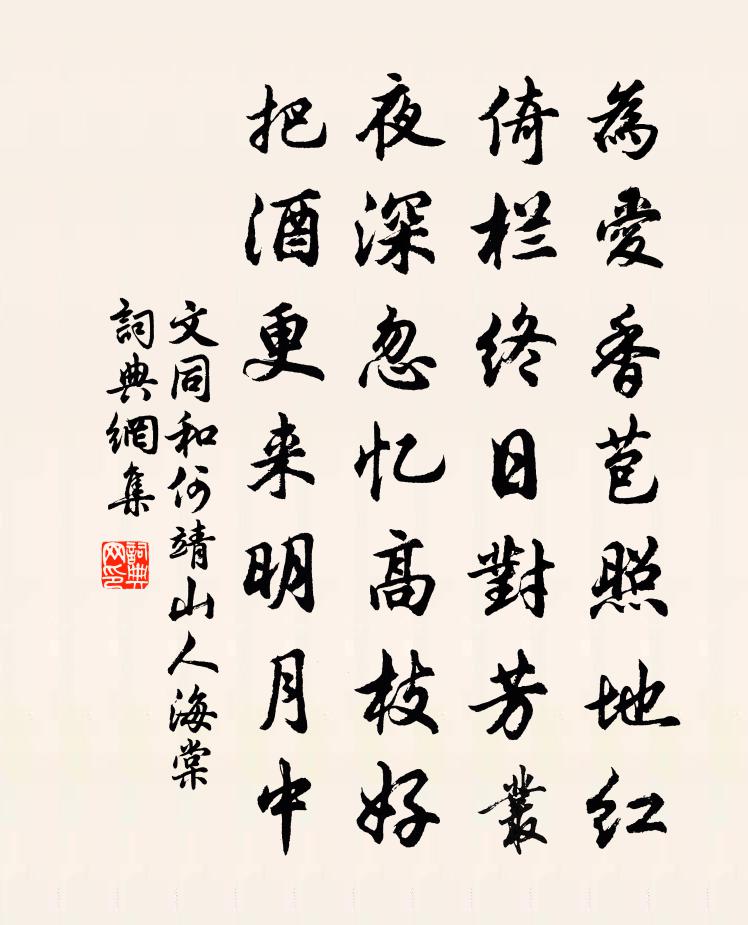 為愛香苞照地红
倚栏終日對芳叢
夜深忽忆高枝好
把酒更来明月中
文同和何靖山人海棠
詞典網集
詞典网印